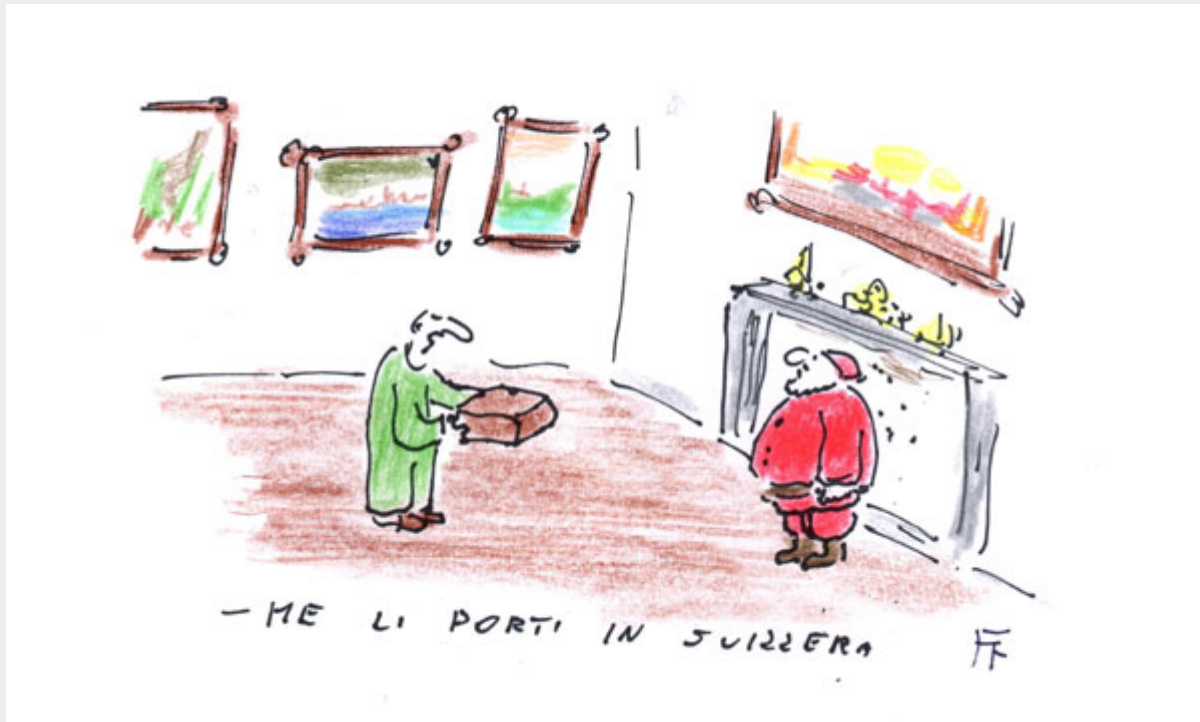 – ME LI PORTI IN SUIZZERA
FF